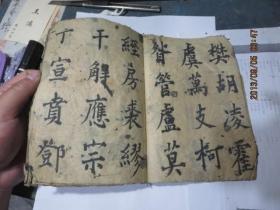 樊胡凌霍
虞萬支柯
昝管盧莫
經房裘繆
干解應宗
丁宣賁鄧